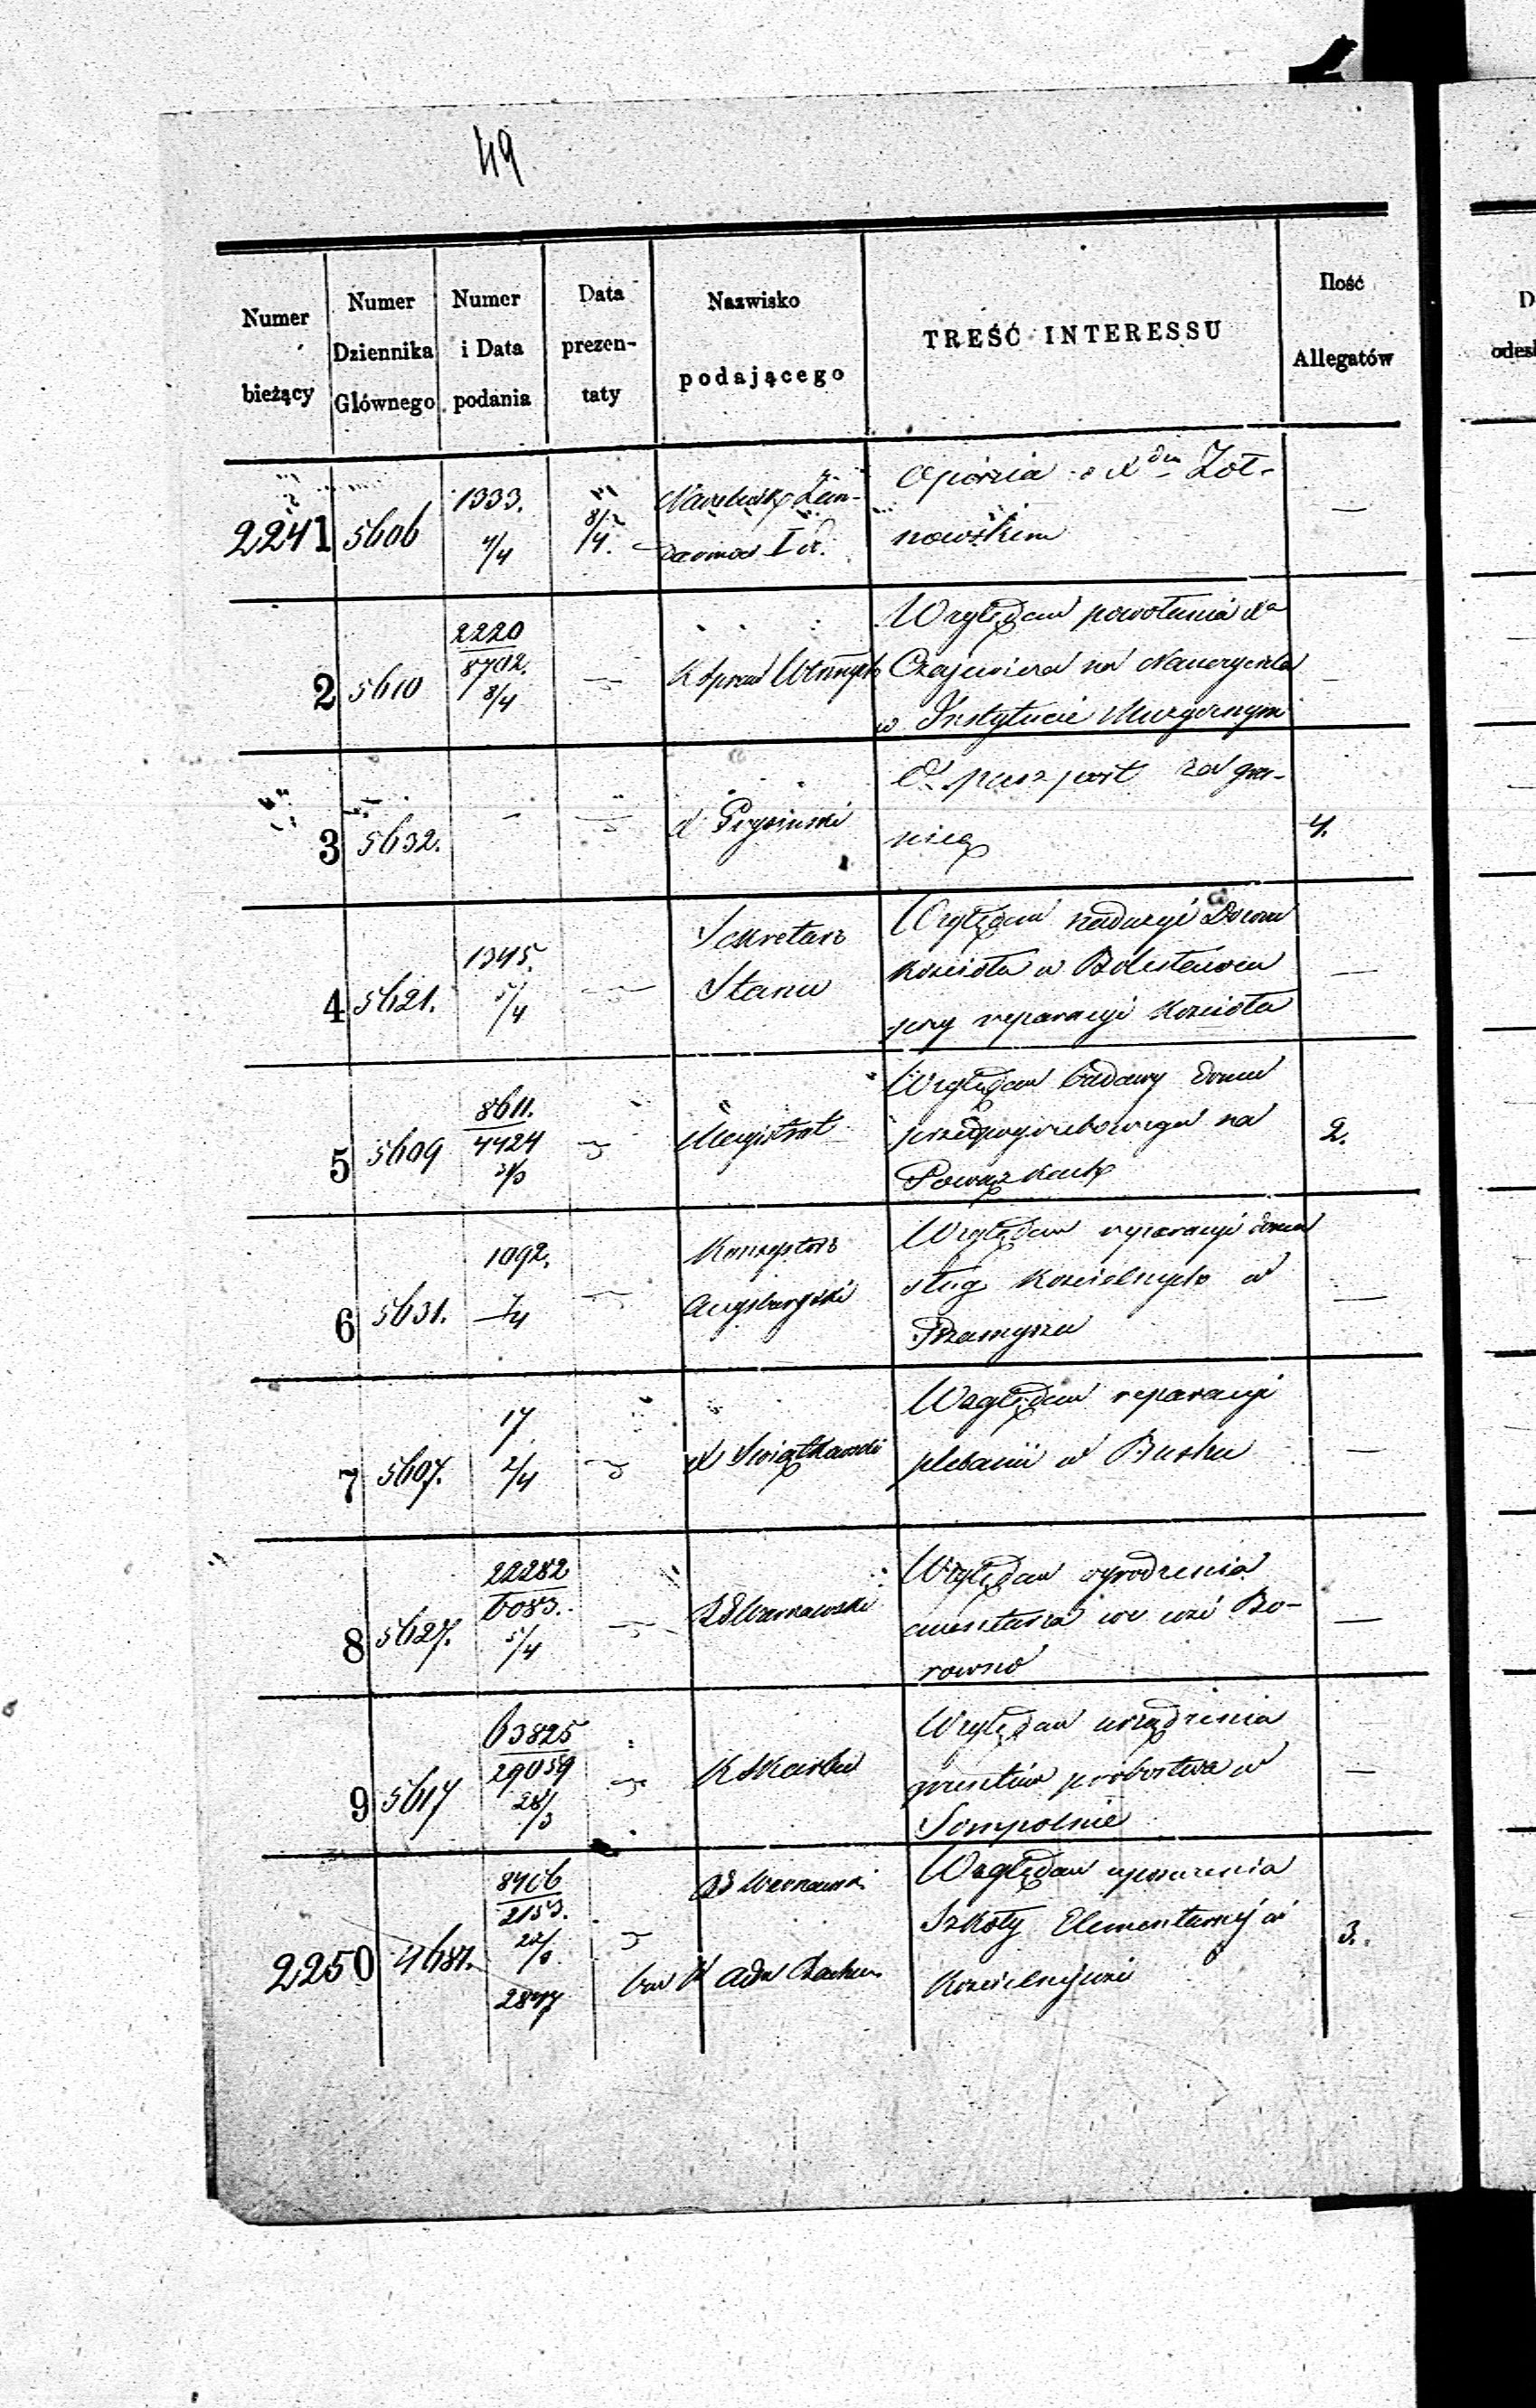 49
Numer bieżący | Numer Dziennika Głównego | Numer i Data podania | Data prezentaty | Nazwisko podającego | TREŚĆ INTERESSU | Ilość Allegatów
D
odes
2241 | 5606 | 1333. 4/4 | 8/4. | Naczelnik Żan-
darmów I | Opinia o X Żoł-
nowskim | —
2 | 5610 | 2220
8702. 8/4 | — | K Spraw Wewnętrz | Względem powołania Xa
na Nauczyciela
w Instytucie Muzycznym | —
3 | 5632. | — | — | X | O paszport za gra-
nicę | 4.
4 | 5621. | 1345. 5/4 | — | Sekretarz
Stanu | Względem
Kościoła w Bolesławcu
przy reparacyi Kościoła | —
5 | 5609 | 8611.
4424 | — | Magistrat | Względem budowy domu
przedpogrzebowego na
Powązkach | 2.
6 | 5631. | 1092. 7/4 | — | Konsystorz
Augsburgski | Względem reparacyi domu
sług Kościelnych w
Przasnyszu | —
7 | 5607. | 17. 2/4 | — | X Świątkowski | Względem reparacyi
plebanii w Busku | —
8 | 5627. | 22282
6083. 5/4 | — | RG Warszawski | Względem ogrodzenia
cmentarza we wsi Bo-
rowno | —
9 | 5617 | 63825
29059 28/3 | — | K Skarbu | Względem urządzenia
gruntów probostwa w
Sompolnie | —
2250 | 4687. | 8406
2153.
2877 | — | RG Warszawski | Względem
Szkoły Elementarnej w
Kościelnej wsi | 3.